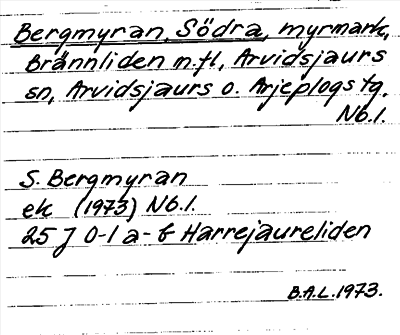 Bergmyran, Södra, myrmark,
Brännliden m.fl., Arvidsjaurs
sn, Arvidsjaurs o. Arjeplogs tg.
Nb.l.
S. Bergmyran
ek (1973) Nb.l.
25 J 0-1 a-b Harrejaureliden
B.A.L. 1973.